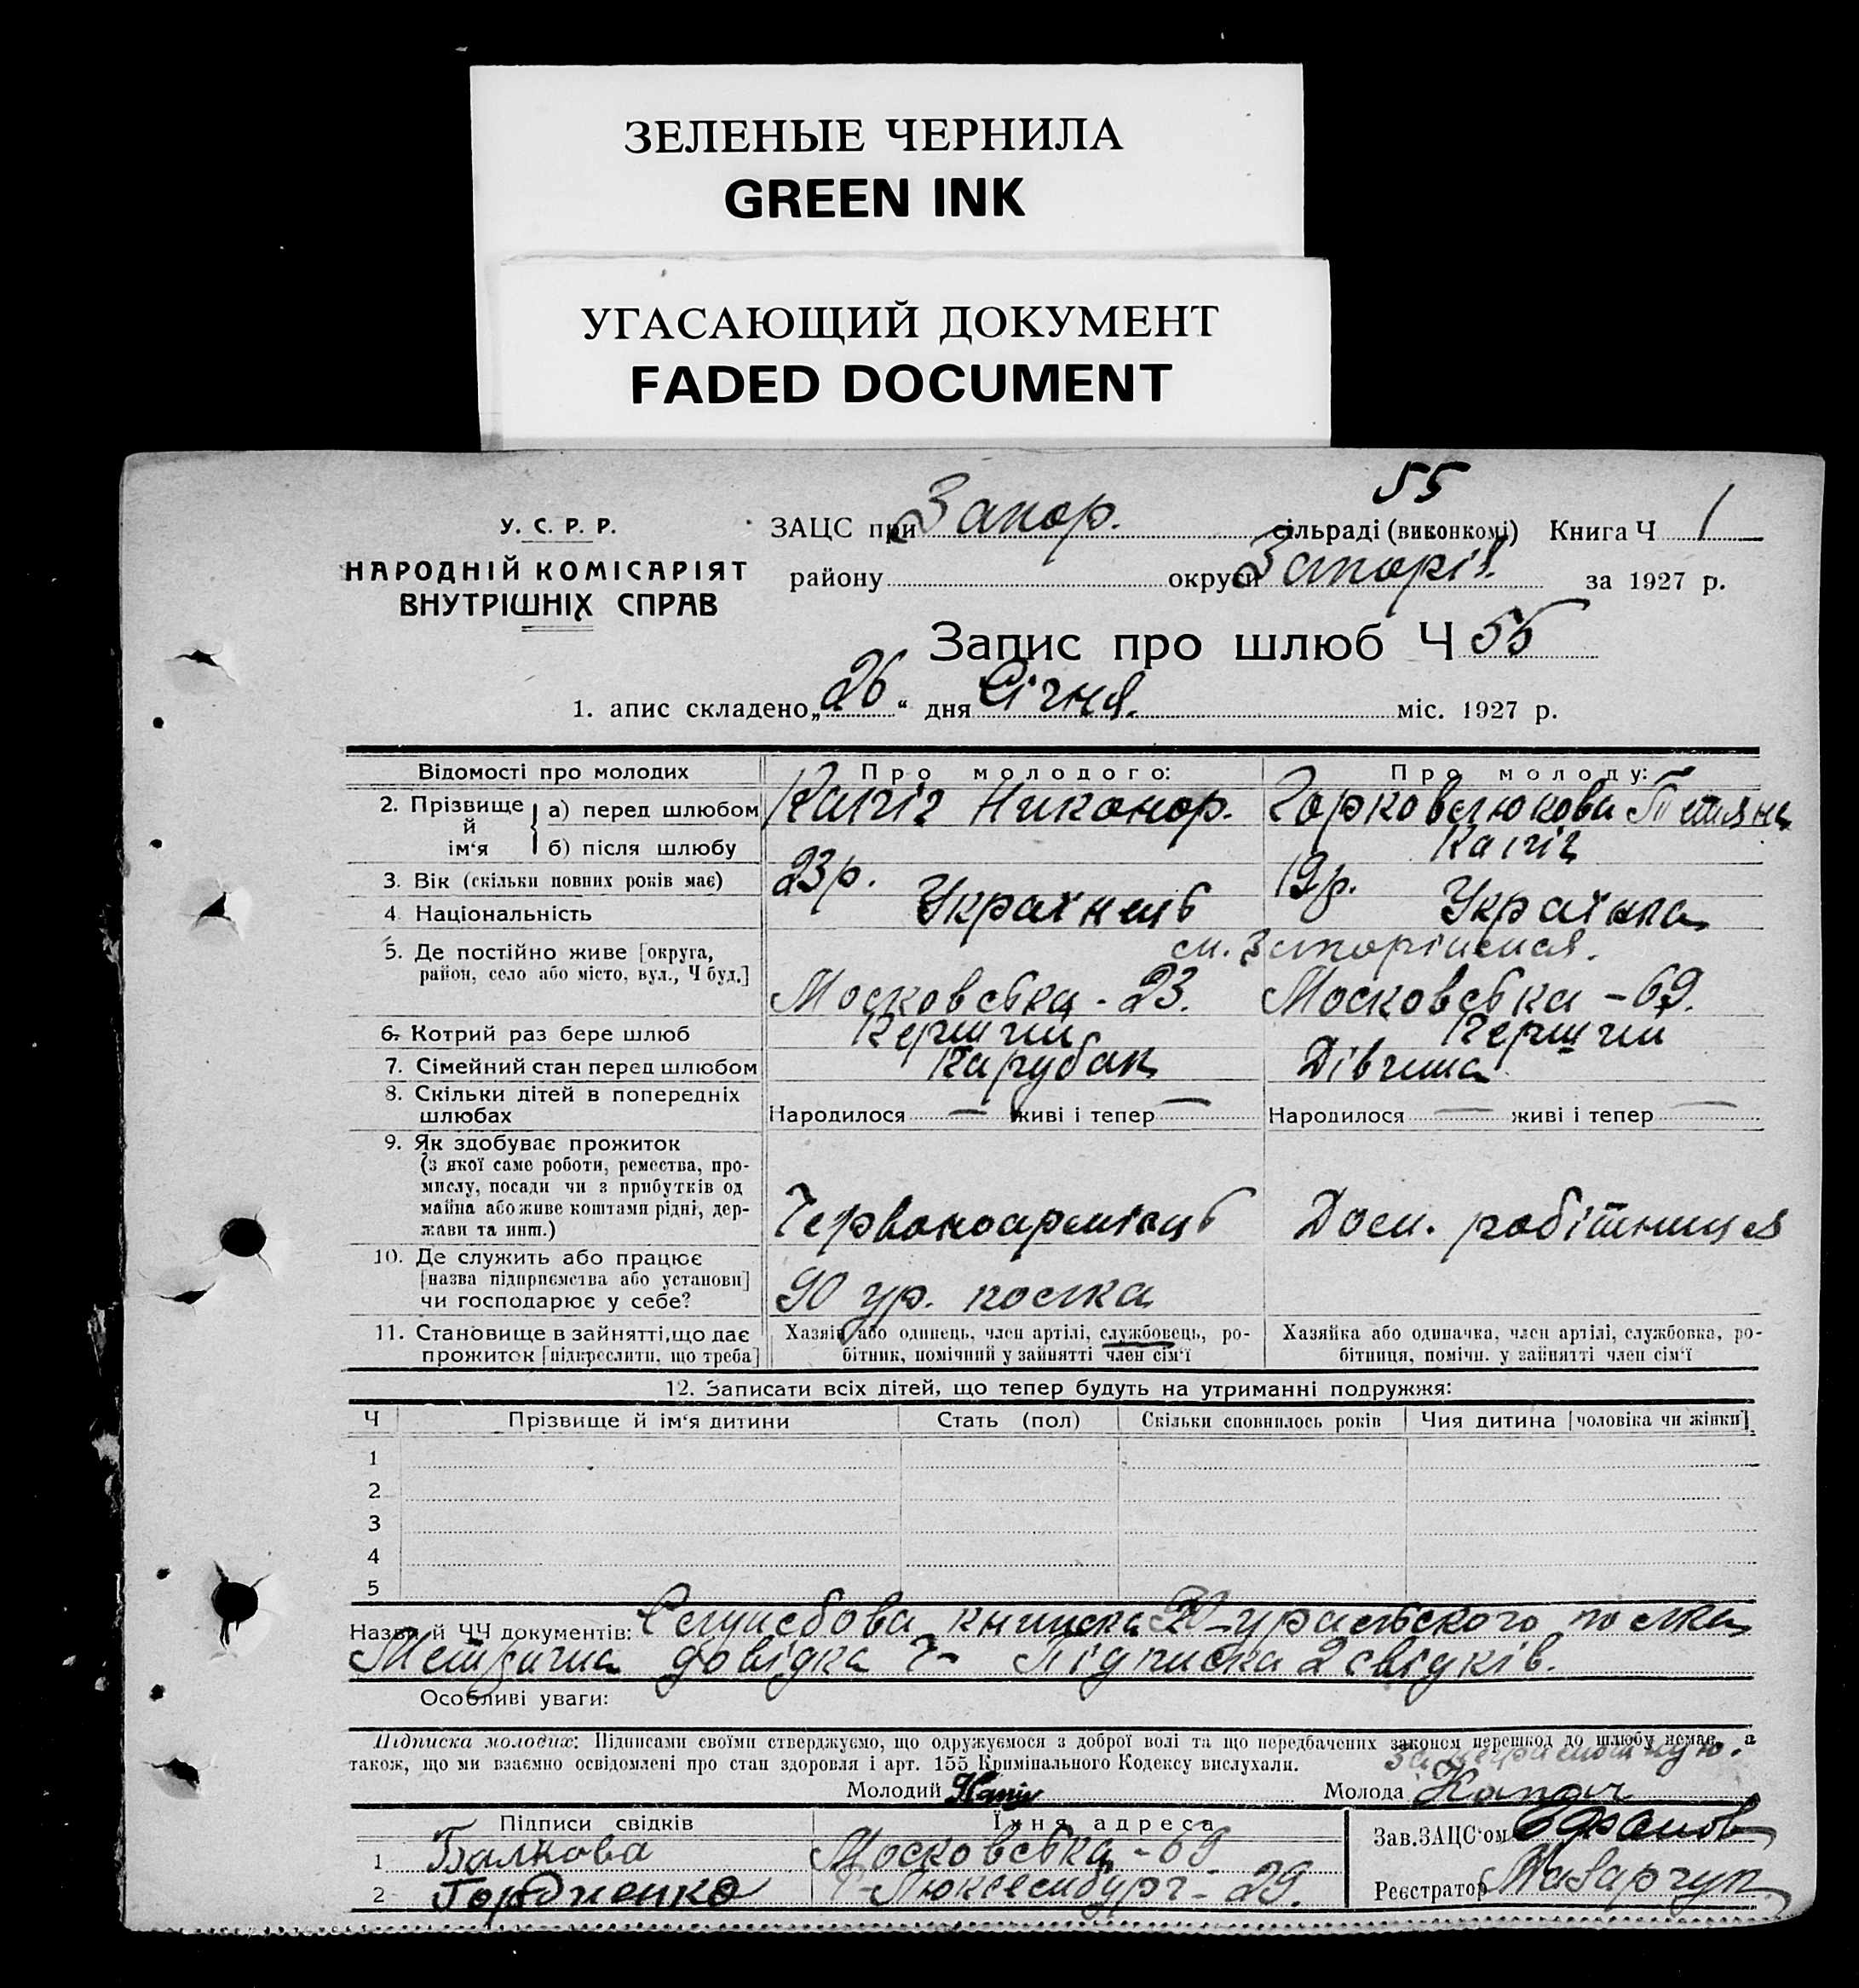 ЗЕЛЕНЫЕ ЧЕРНИЛА
GREEN INK
УГАСАЮЩИЙ ДОКУМЕНТ
FADED DOCUMENT
55
У. С. Р. Р.
НАРОДНІЙ КОМІСАРІЯТ
ВНУТРІШНІХ СПРАВ
ЗАЦС при Запор. сільраді (виконкомі) Книга Ч 1
району округи Запоріз. за 1927 р.
Запис про шлюб Ч 55
1. апис складено „26“ дня Січня. міс. 1927 р.
Відомості про молодих Про молодого: Про молоду:
2. Прізвище й ім‘я а) перед шлюбом Никонор. Тетяна
б) після шлюбу
3. Вік (скільки повних років має) 23 р. 19 р.
4 Національність Українець Українка
5. Де постійно живе [округа, м. Запоріжжя.
район, село або місто, вул., Ч буд.] Московська - 23. Московська - 69.
6. Котрий раз бере шлюб Перший Перший
7. Сімейний стан перед шлюбом Парубак Дівчина
8. Скільки дітей в попередніх
шлюбах Народилося — живі і тепер — Народилося — живі і тепер —
9. Як здобуває прожиток
(з якої саме роботи, ремества, про-
мислу, посади чи з прибутків од
майна або живе коштами рідні, дер-
жави та инш.) Червоноармієць Дом. робітниця
10. Де служить або працює
[назва підприємства або установи]
чи господарює у себе? 90 ур. полка
11. Становище в зайнятті, що дає Хазяїн або одинець, член артілі, службовець, ро- Хазяйка або одиначка, член артілі, службовка, ро-
прожиток [підкреслити, що треба] бітник, помічний у зайнятті член сім‘ї бітниця, помічн. у зайнятті член сім‘ї
12. Записати всіх дітей, що тепер будуть на утриманні подружжя:
Ч Прізвище й ім‘я дитини Стать (пол) Скільки сповнилось років Чия дитина [чоловіка чи жінки]
1
2
3
4
5
Назви й ЧЧ документів: Служебова книжка 90-уральского полка
Метрична довідка Ч- Підписка 2 свідків.
Особливі уваги:
Підписка молодих: Підписами своїми стверджуємо, що одружуємося з доброї волі та що передбачених законом перешкод до шлюбу немає, а
також, що ми взаємно освідомлені про стан здоровля і арт. 155 Кримінального Кодексу вислухали.
за неграмотную.
Молодий Молода
Підписи свідків Їхня адреса Зав.ЗАЦС‘ом
1 Балкова Московська - 69
2 Гордиенко Р-Люксембург - 29. Реєстратор